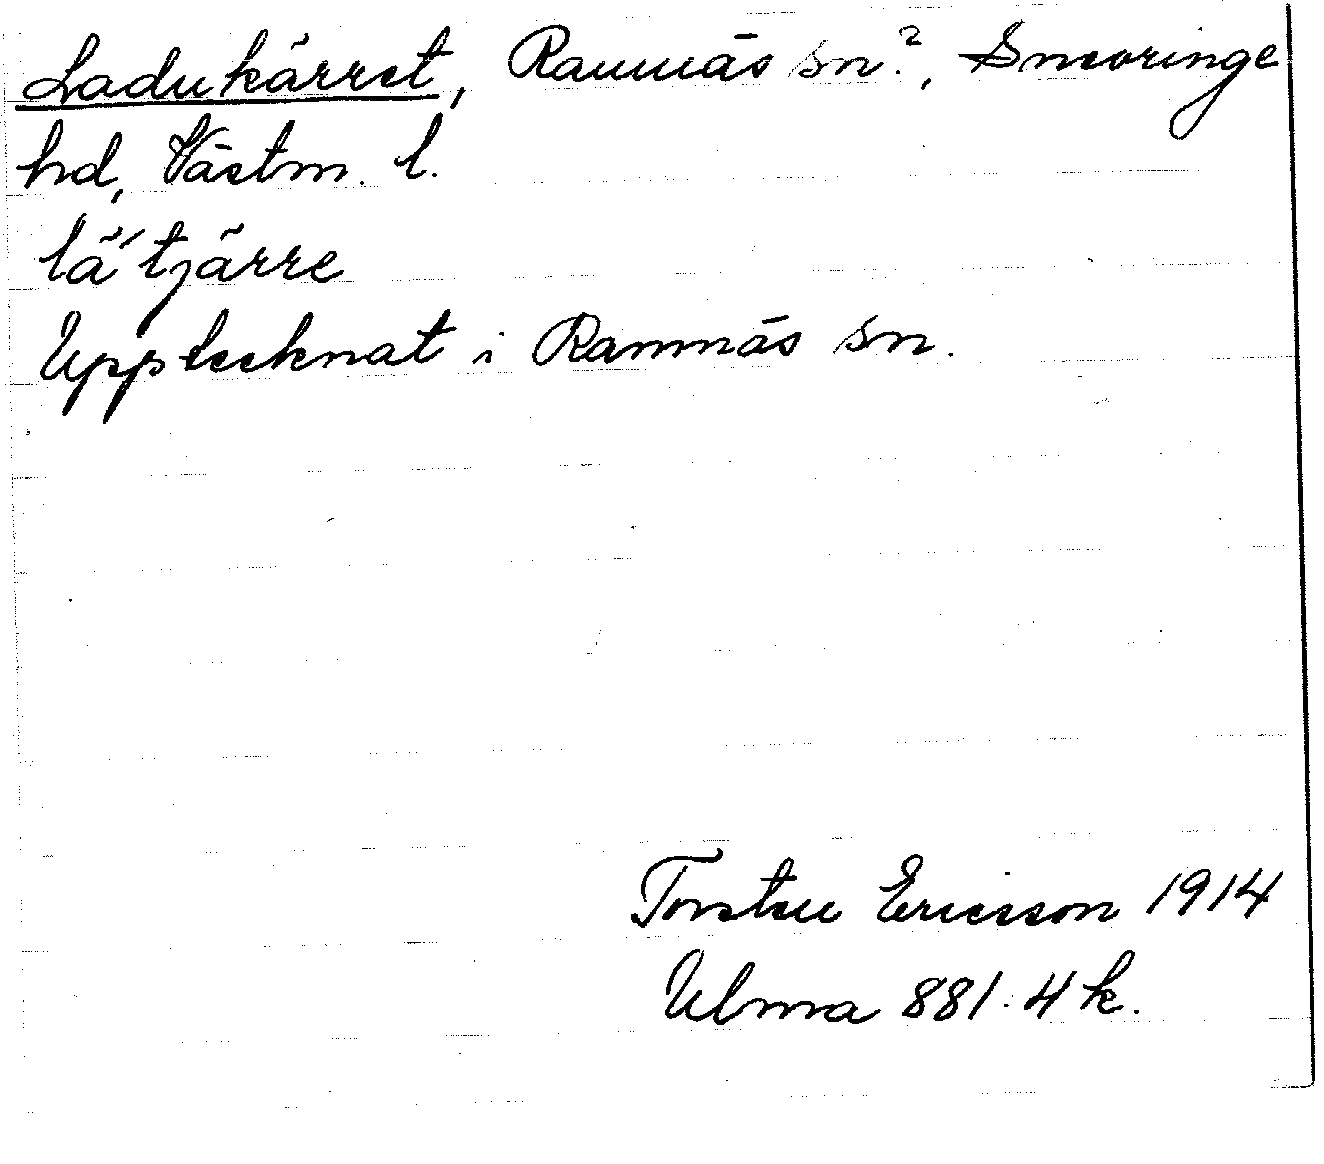 Ladukärret, Ramnäs sn?, Snevringe
hd, Västm. l.
lä´tjärre
Upptecknat i Ramnäs sn.
Torsten Ericsson 1914
Ulma 881.4k.